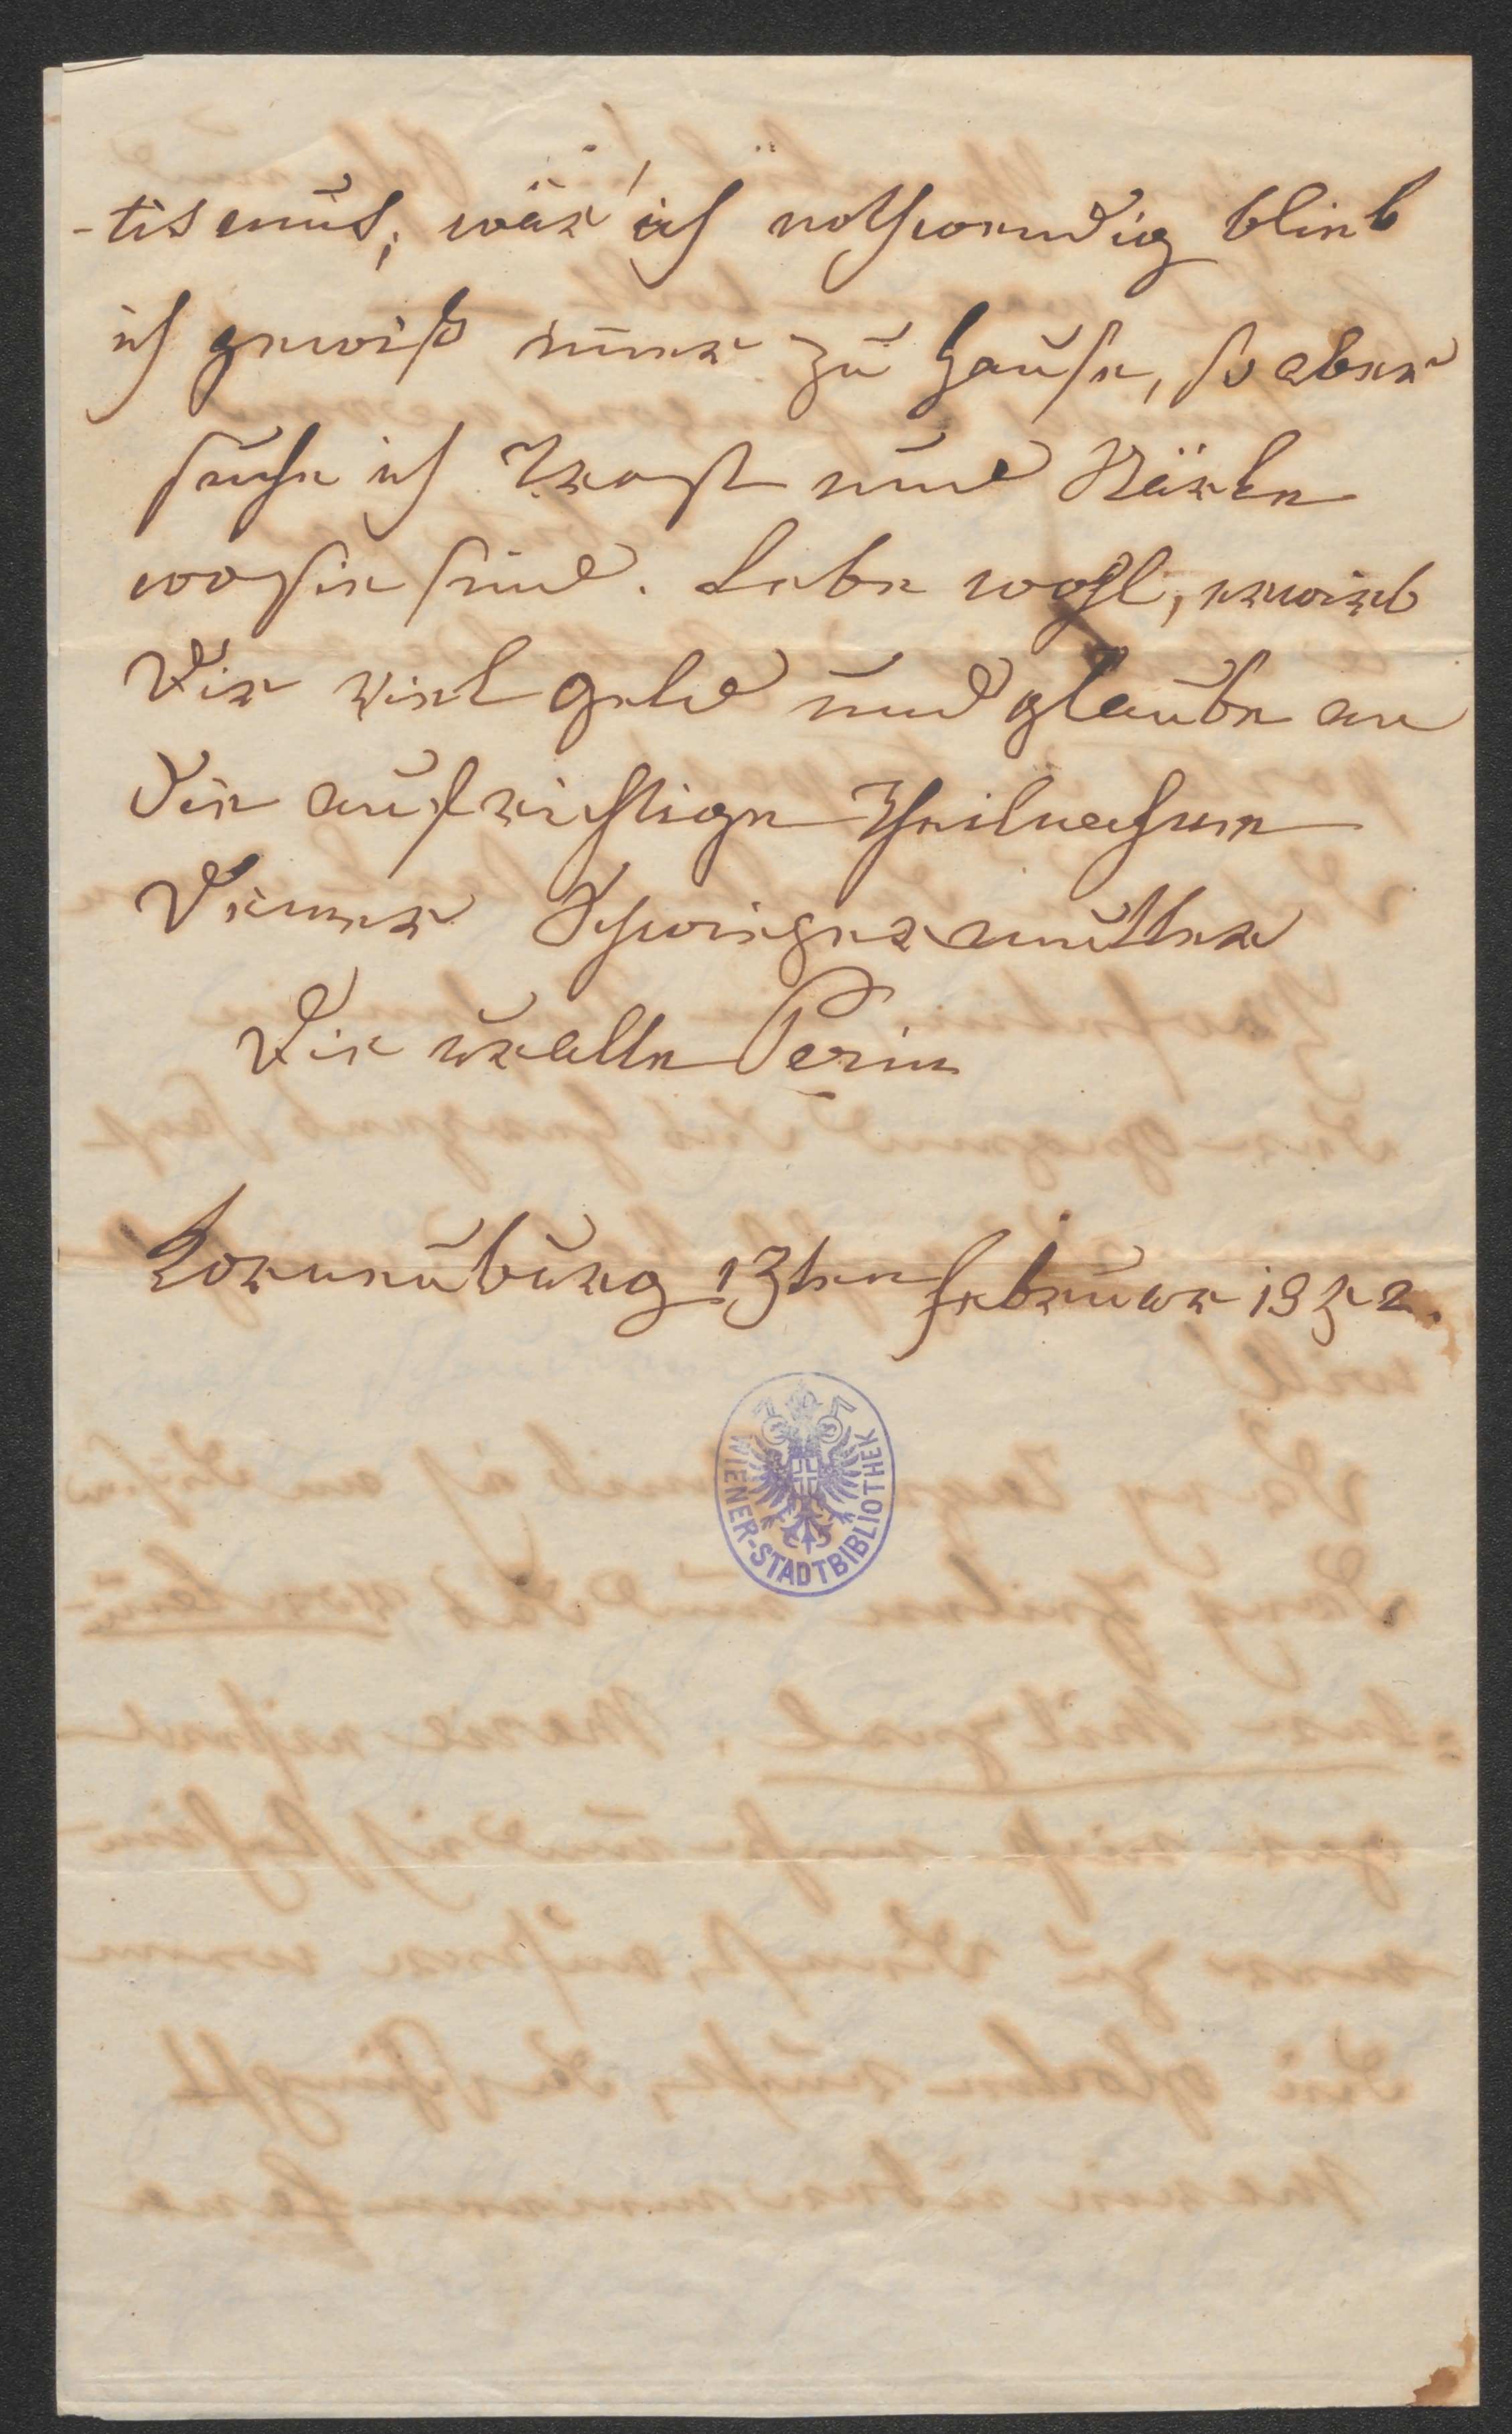 -tismus, wär ich nothwendig blieb
ich gewiß immer zu Hause, so aber
suche ich Trost und Stärke
wo sie sind. Lebe wohl, erwirb
Dir viel Geld und glaube an
die aufrichtige Theilnahme
Deiner Schwiegermutter
Die uralte Perin
Korneuburg 13ten Februar 1852.
WIENER-STADTBIBLIOTHEK